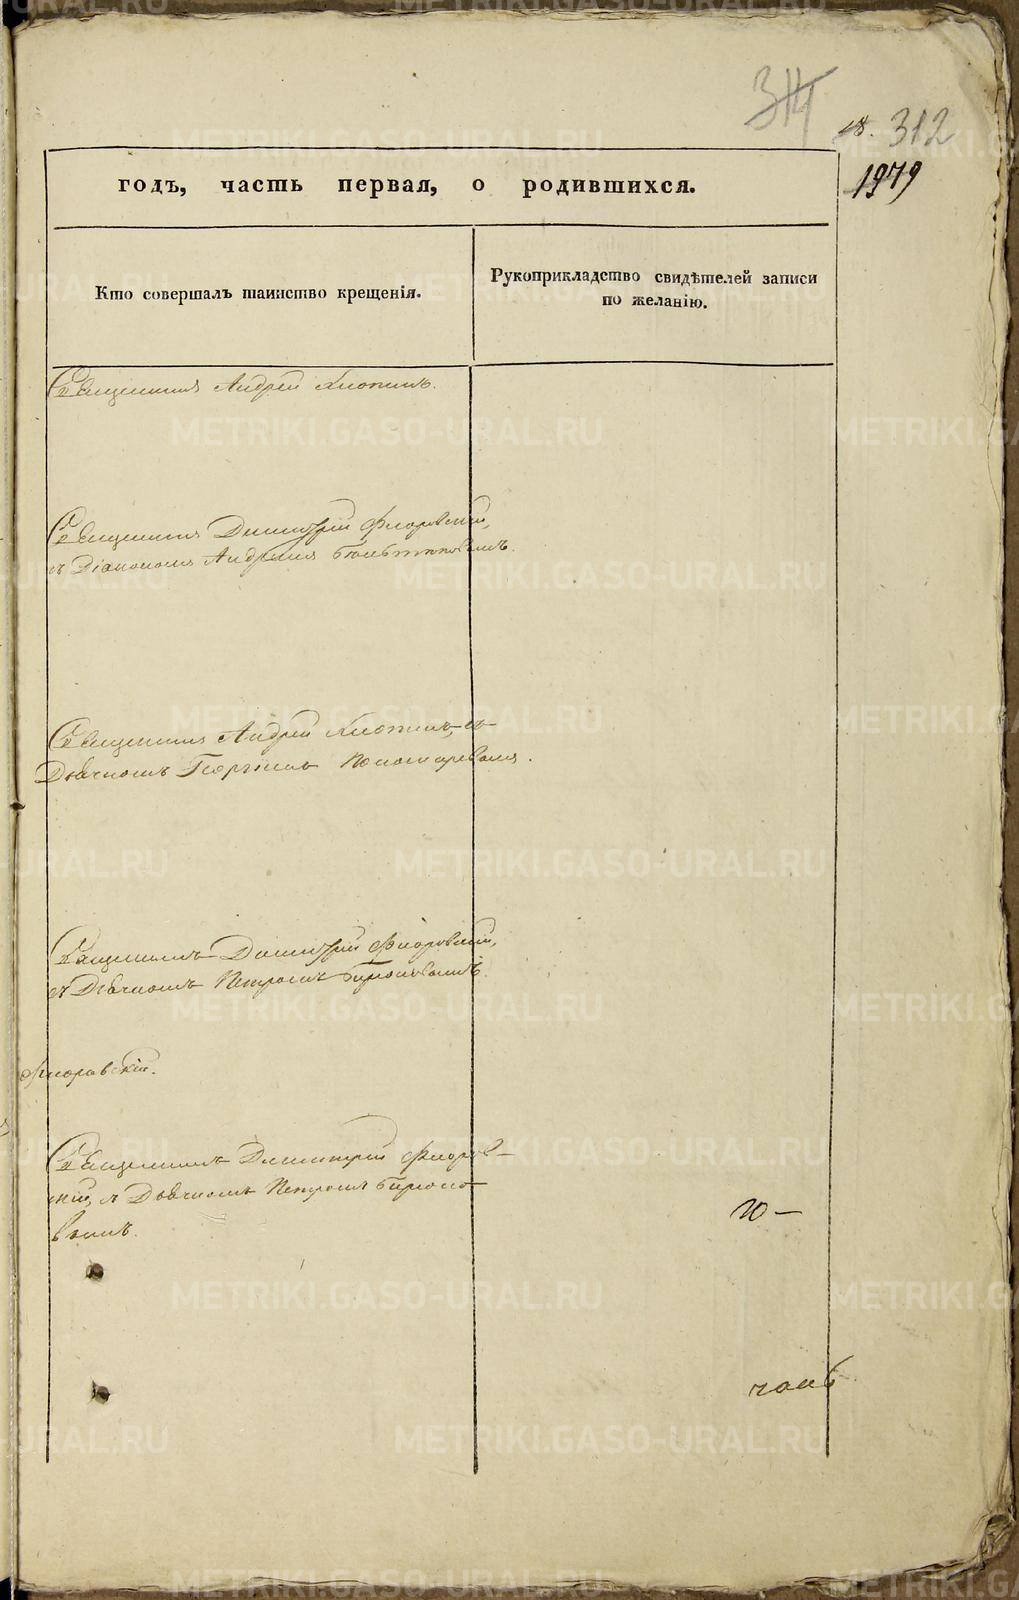 314
18. 312
1979
годъ, часть первая, о родившихся.
Кто совершалъ таинство крещенія.
Рукоприкладство свидѣтелей записи
по желанію.
Священникъ Андрей
Священникъ Димитрій Флоровскій,
съ Діакономъ Андреемъ
Священникъ Андрей съ
Дьячкомъ Георгіемъ Пономаревымъ.
Священникъ Димитрій Флоровскій,
съ Дьячкомъ Петромъ Бирюковымъ.
Флоровскій.
Священникъ Димитрій Флоров-
скій, съ Дьячкомъ Петромъ Бирюко-
вымъ.
METRIKI.GASO-URAL.RU